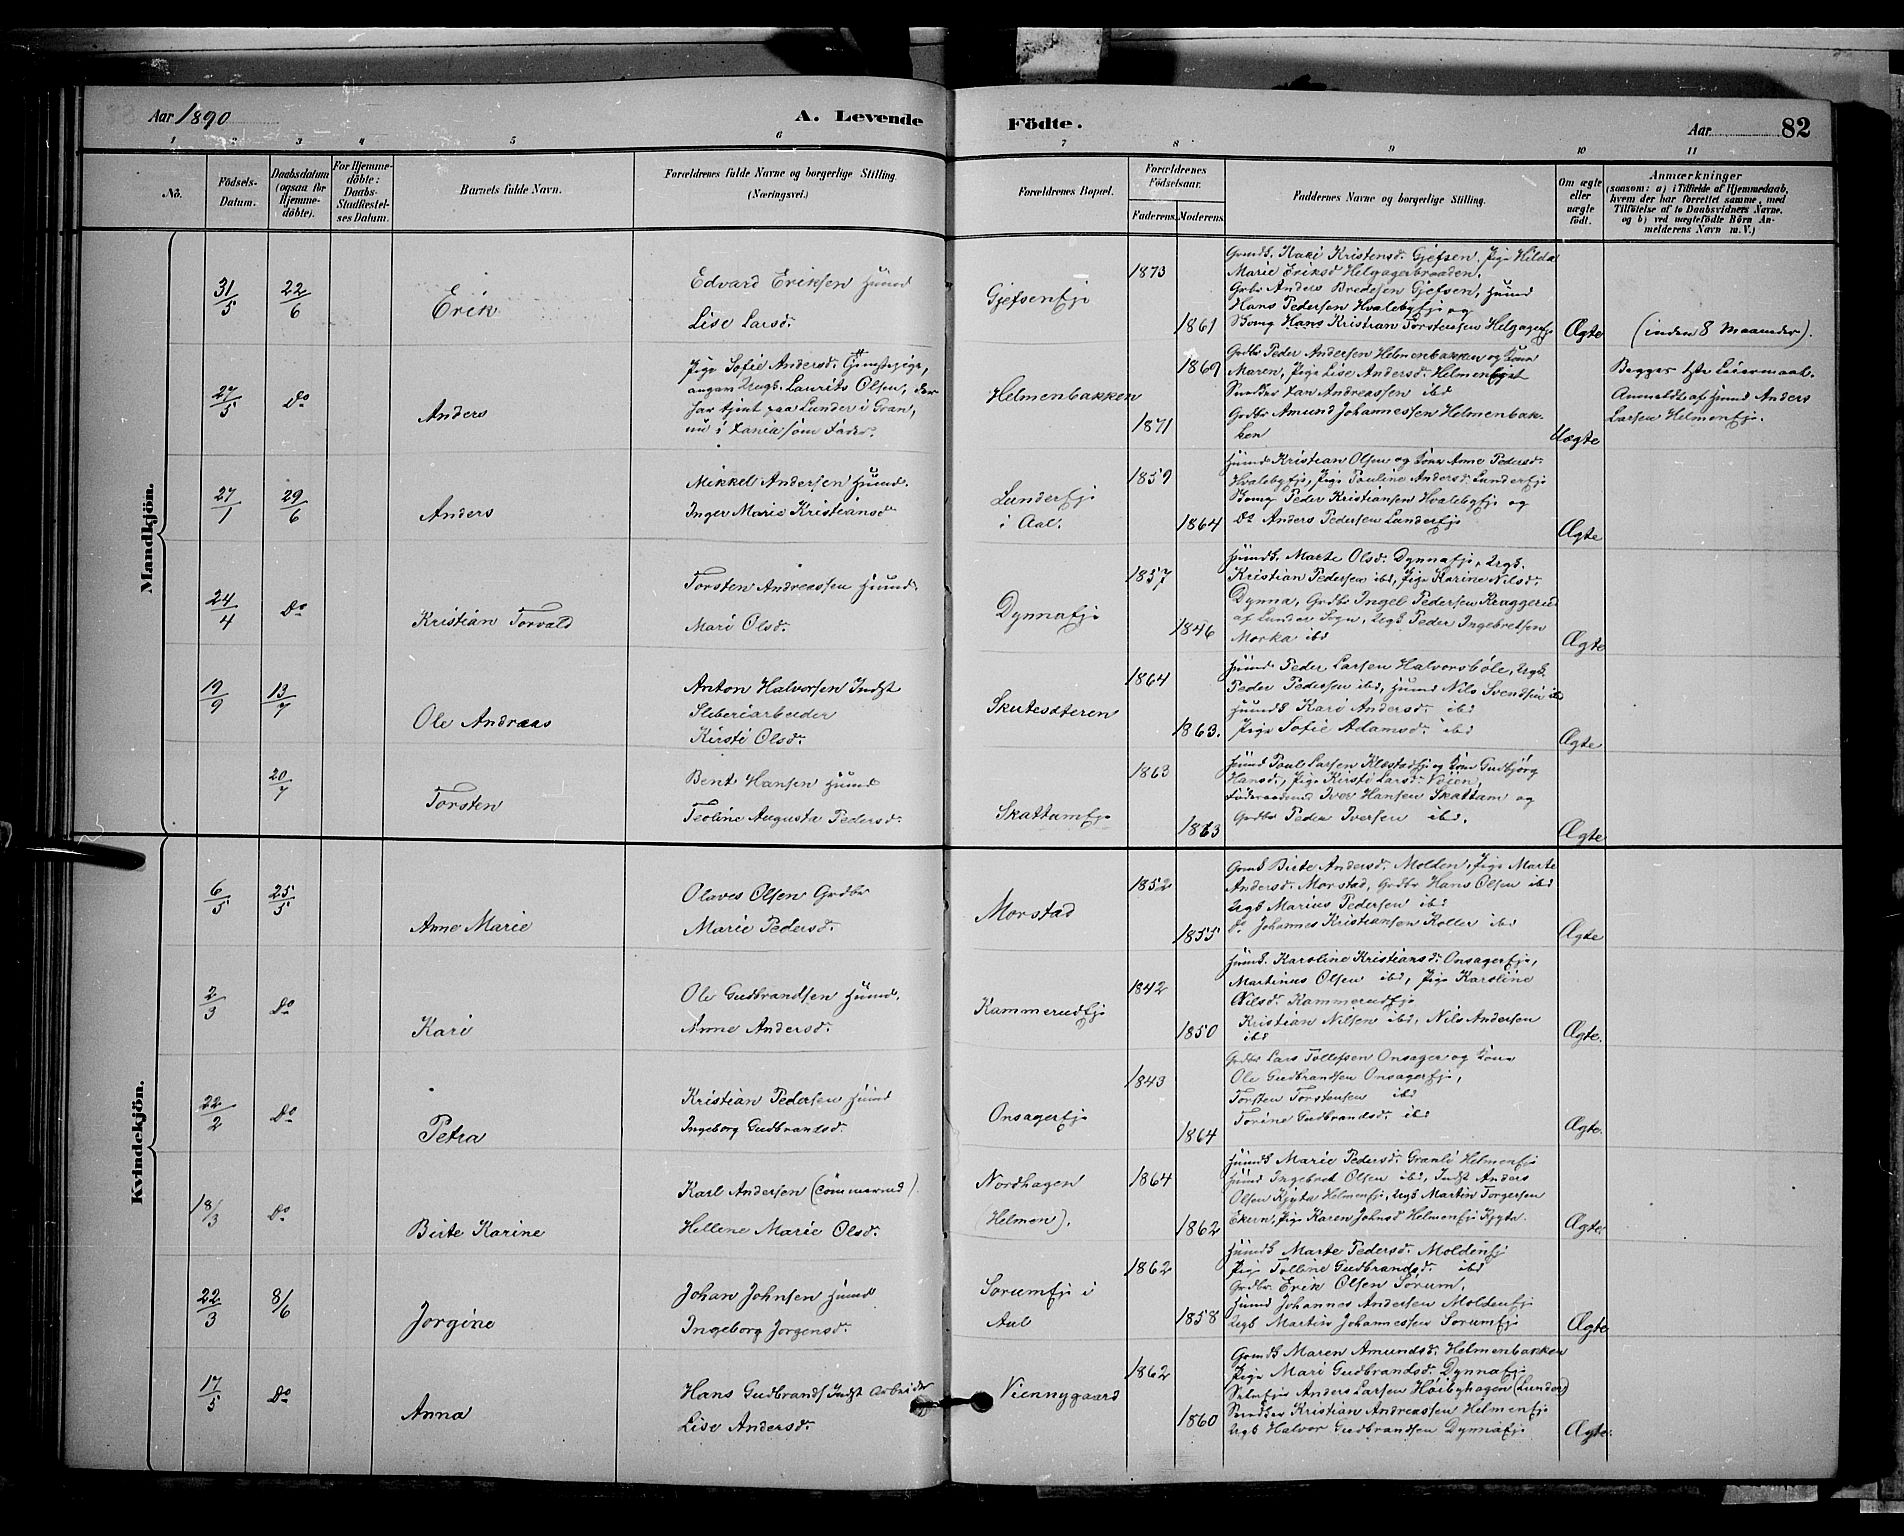 Aar 1890
A. Levende
Födte.
Aar
82
1 2 3 4 5 6 7 8 9 10 11
No.
Födsels-Datum.
Daabsdatum (ogsaa for Hjemmedöbte).
For Hjemmedöbte: Daabs-Stadfæstelses Datum.
Barnets fulde Navn.
Forældrenes fulde Navne og borgerlige Stilling. (Næringsvei.)
Forældrenes Bopæl.
Forældrenes Födselsaar.
Faderens. Moderens.
Faddernes Navne og borgerlige Stilling.
Om ægte eller uægte födt.
Anmærkninger
(saasom: a) i Tilfælde af Hjemmedaab,
hvem der har forrettet samme, med
Tilföielse af to Daabsvidners Navne,
og b) ved uægtefödte Börn An-
melderens Navn m. V.)
Mandkjön.
31/5 22/6
Erik
Edvard Eriksen Huusmd
Lise Larsd.
Gjefsenejе
1873
1861
Kari Kristensd. Gjefsen, Pige Hilda
Marie Eriksd Helgagerbraaden,
Grbr Anders Bredesen Gjefsen, Huusmd
Hans Pedersen Hvalebyeje og
Hans Kristian Torstensen Helgagereje
Ægte
(inden 8 Maaneder).
27/5 Do
Anders
Pige Sofie Andersd. Tjenestepige,
angav Ungk. Laurits Olsen, der
har tjent paa Lunder i Gran,
nu i som Fader.
Helmenbakken
1869
1871
Grdbr Peder Andersen Helmenbakken og Kone
Maren, Pige Lise Andersd. Helmeneiet
Andreassen ibd
Grdbr Amund Johannessen Helmenbak-
ken
Uægte
Begges 1ste Leiermaal.
Anmeldt af Huusmd Anders
Larsen Helmeneje.
27/1 29/6
Anders
Mikkel Andersen Huusmd.
Inger Marie Kristiansd
Lundereje
i Aal.
1859
1864
Huusmd Kristian Olsen og Kone Anne Pedersd.
Hvalebyeje, Pige Pauline Andersd. Lundereje
Peder Kristiansen Hvalebyeje og
Do Anders Pedersen Lundereje
Ægte
24/4 Do
Kristian Torvald
Torsten Andreassen Huusmd.
Mari Olsd.
Dynnaeje
1857
1846
Marte Olsd. Dynnaeje, Ungk.
Kristian Pedersen ibd, Pige Karine Nilsd.
Dynna, Grdbr Ingel Pedersen Kraggerud
af Lunder Sogn, Ungk Peder Ingebretsen
Morka ibd
Ægte
19/9 13/7
Ole Andreas
Anton Halvorsen Indst
Sliberiarbeider
Kirsti Olsd.
Skutesæteren
1864
1863.
Huusmd. Peder Larsen Halvorsböle, Ungk.
Peder Pedersen ibd, Huusmd Nils Svendsen ibd
Kari Andersd. ibd
Pige Sofie Adamsd. ibd
Ægte
20/7
Torsten
Bent Hansen Huusmd
Teoline Augusta Pedersd.
Skattumeje
1863
1863
Huusmd Paul Larsen Klæstadeje og Kone Gudbjörg
Hansd., Pige Kirsti Larsd. Veien,
Föderaadsmd Iver Hansen Skattum og
Grdbr Peder Iversen ibd.
Ægte
Kvindekjön.
6/5 25/5
Anne Marie
Olaves Olsen Grdbr
Marie Pedersd.
Morstad
1852
1855
Birte Andersd. Molden, Pige Marte
Andersd. Morstad, Grdbr Hans Olsen ibd
Ungk Marius Pedersen ibd
Do Johannes Kristiansen Koller ibd
Ægte
2/3 Do
Kari
Ole Gudbrandsen Huusmd.
Anne Andersd.
Kammerudeje
1842
1850
Karoline Kristiansd. Onsagereje,
Martinus Olsen ibd, Pige Karoline
Nilsd. Kammerudeje
Kristian Nilsen ibd, Nils Andersen
ibd
Ægte.
22/2 Do
Petra
Kristian Pedersen Huusmd
Ingeborg Gudbrandsd.
Onsagereje
1843
1864
Grdbr Lars Tollefsen Onsager og Kone
Ole Gudbrandsen Onsagereje,
Torsten Torstensen ibd
Torine Gudbrandsd. ibd
Ægte.
18/3 Do
Birte Karine
Karl Andersen (Tömmermd).
Hellene Marie Olsd.
Nordhagen
(Helmen).
1864
1862
Marie Pedersd. Granli Helmeneje
Huusmd Ingebret Olsen ibd, Indst Anders
Olsen Kjyta Helmeneje, Ungk Martin Torgersen
Ekern, Pige Karen Johnsd Helmeneje Kjyta.
Ægte.
22/3 8/6
Jorgine
Johan Johnsen Huusmd
Ingeborg Jorgensd.
Sorumeje i
Aal
1862
1858
Marte Pedersd. Moldeneje
Pige Tolline Gudbrandsd. ibd
Grdbr. Erik Olsen Sörum,
Huusmd Johannes Andersen Moldeneje
Ungk Martin Johannessen Sorumeje
Ægte
17/5 Do
Anna
Hans Gudbrands Indst Arbeider
Lise Andersd.
Viennygaard
1862
1860
Maren Amundsd. Helmenbakken
Pige Mari Gudbrandsd. Dynnaeje
Anders Larsen Höibyhagen (Lunder)
Kristian Andreassen Helmeneje
Ungk Halvor Gudbrandsen Dynnaeje
Ægte.